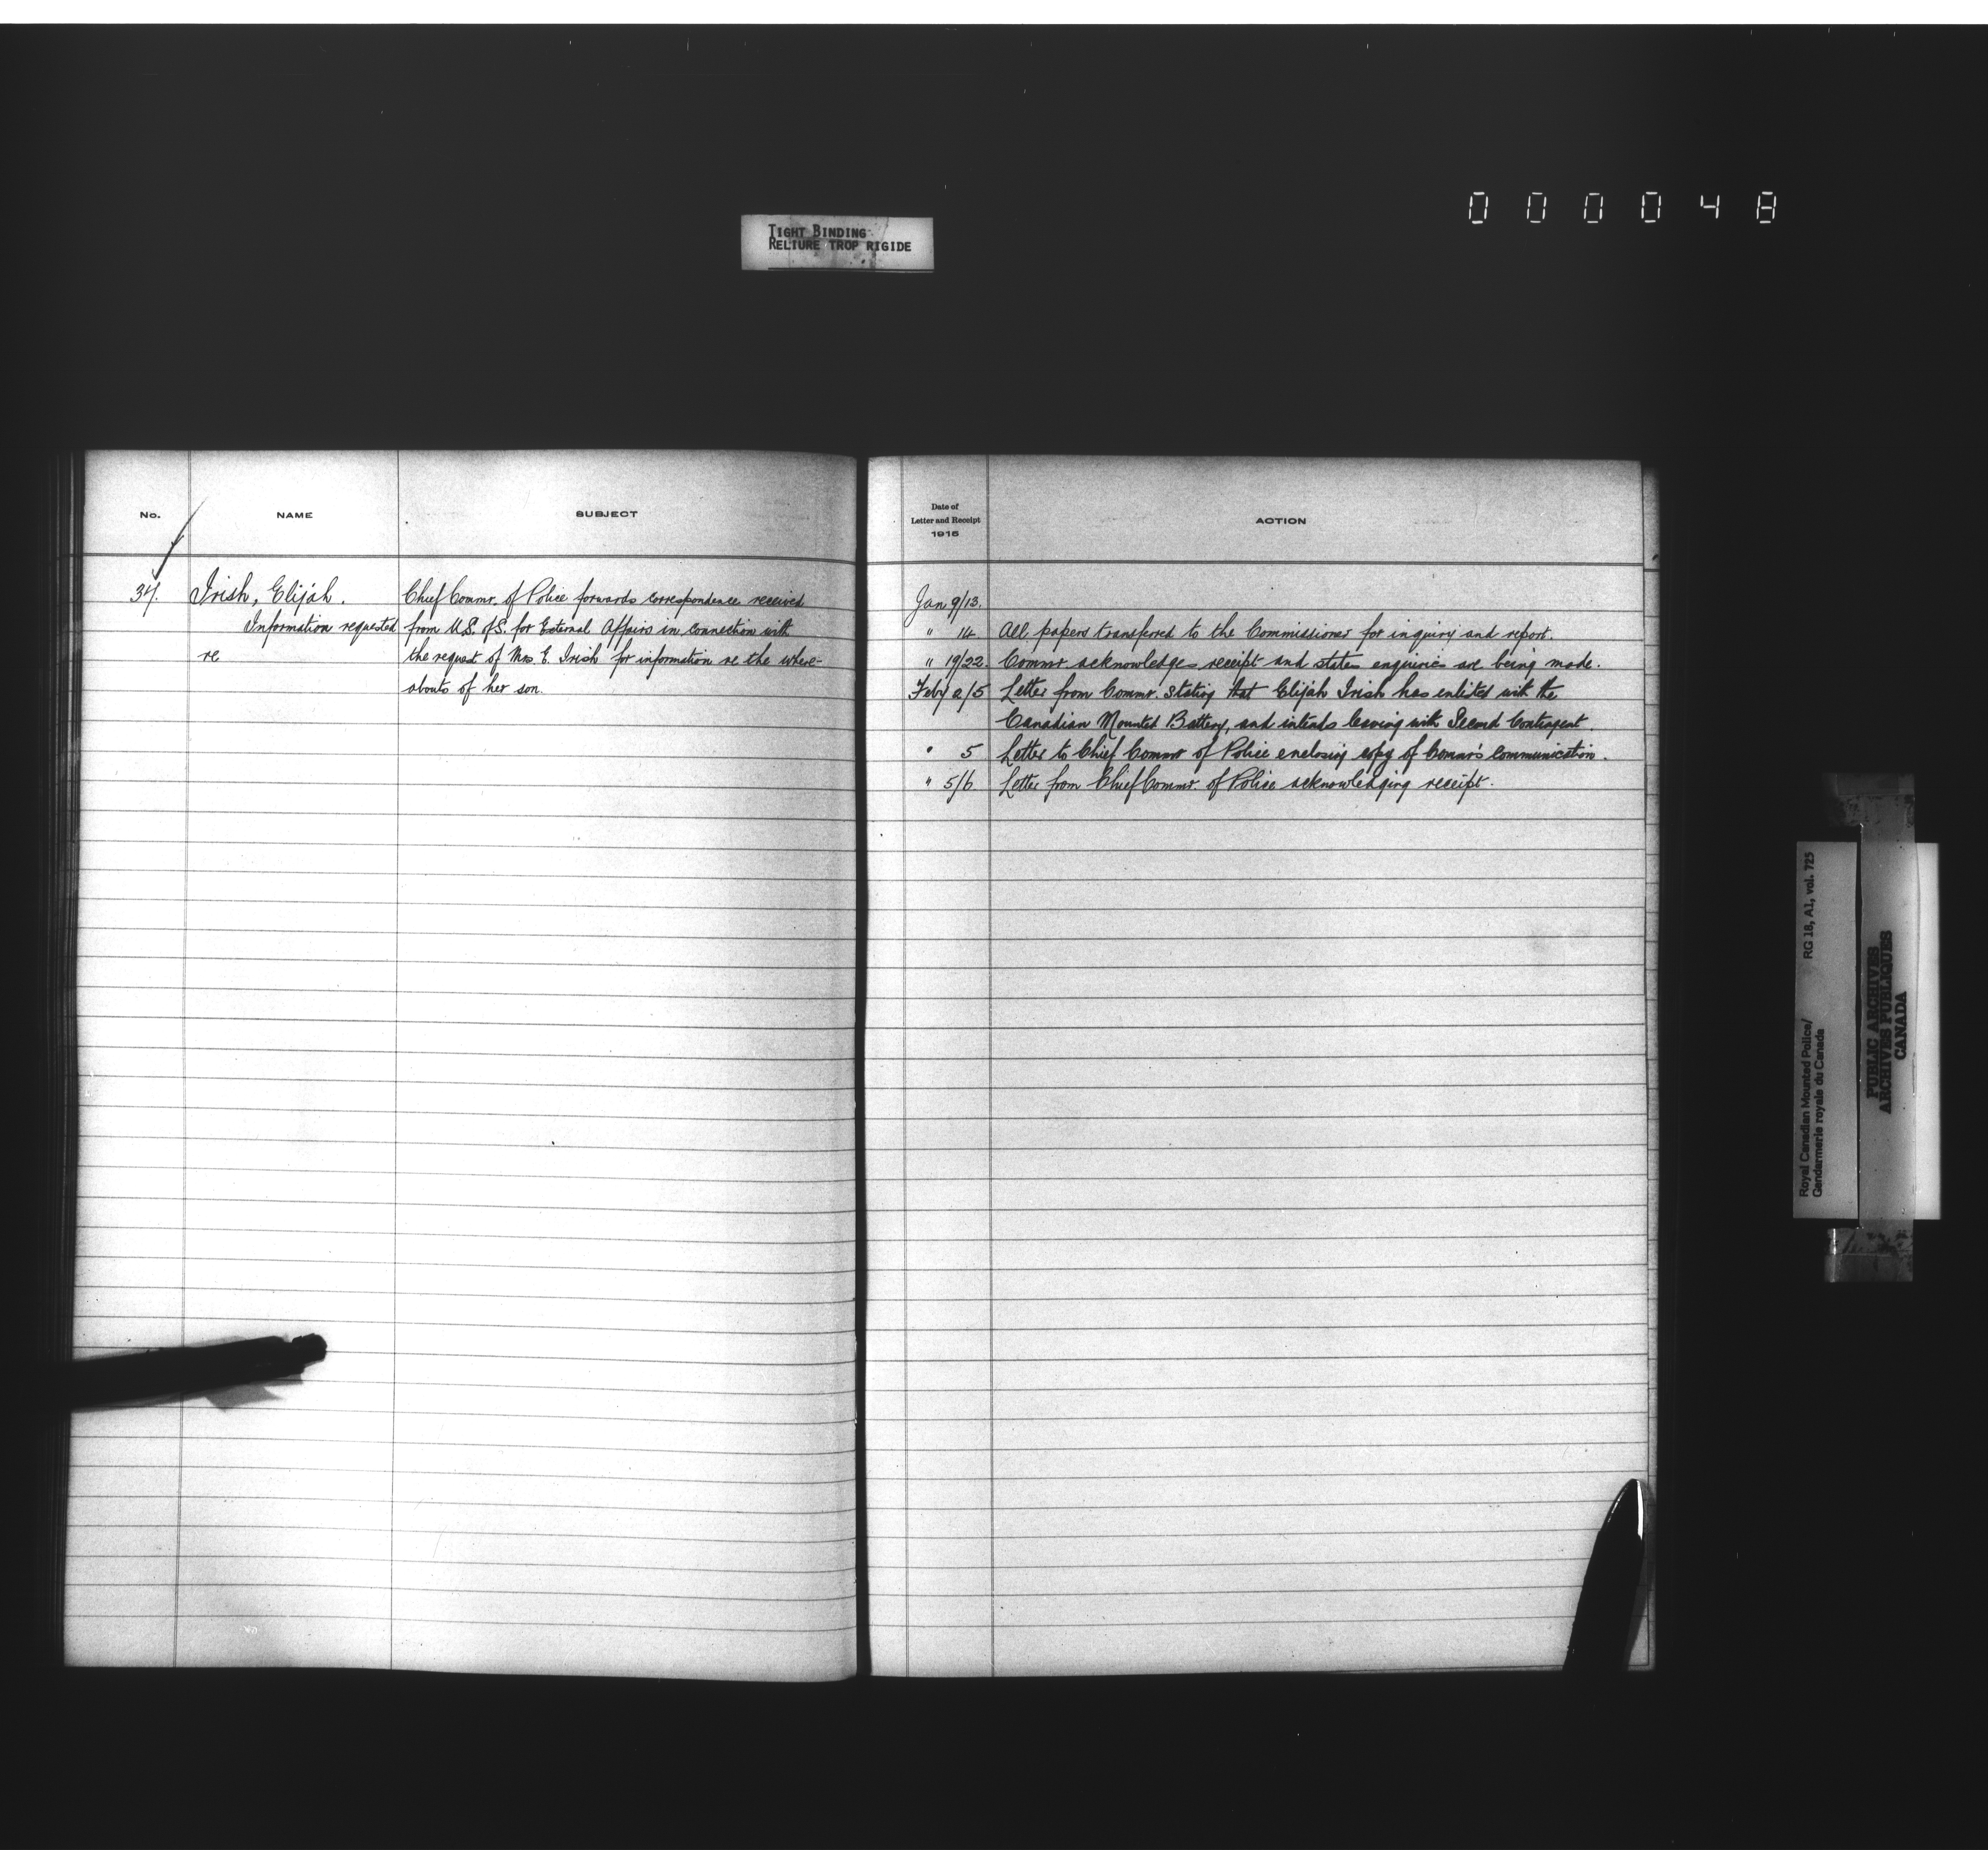 0 0 0 0 4 8
TIGHT BINDING
RELIURE TROP RIGIDE
No.
NAME
SUBJECT
34.
Irish, Elijah.
Information requested
re
Chief Commr. of Police forwards correspondence received
from U.S. of S. for External Affairs in connection with
the request of Mrs. E. Irish for information re the where-
abouts of her son.
Date of
Letter and Receipt
1915
ACTION
Jan 9/13.
" 14. All papers transferred to the Commissioner for inquiry and report.
" 19/22. Commr acknowledges receipt and states enquiries are being made.
Feby 2/5 Letter from Commr. stating that Elijah Irish has enlited with the
Canadian Mounted Battery, and intends leaving with Second Contingent.
" 5 Letter to Chief Commr of Police enclosing copy of Commr's communication.
" 5/6. Letter from Chief Commr. of Police acknowledging receipt.
Royal Canadian Mounted Police/ RG 18, A1, vol. 725
Gendarmerie royale du Canada
PUBLIC ARCHIVES
ARCHIVES PUBLIQUES
CANADA